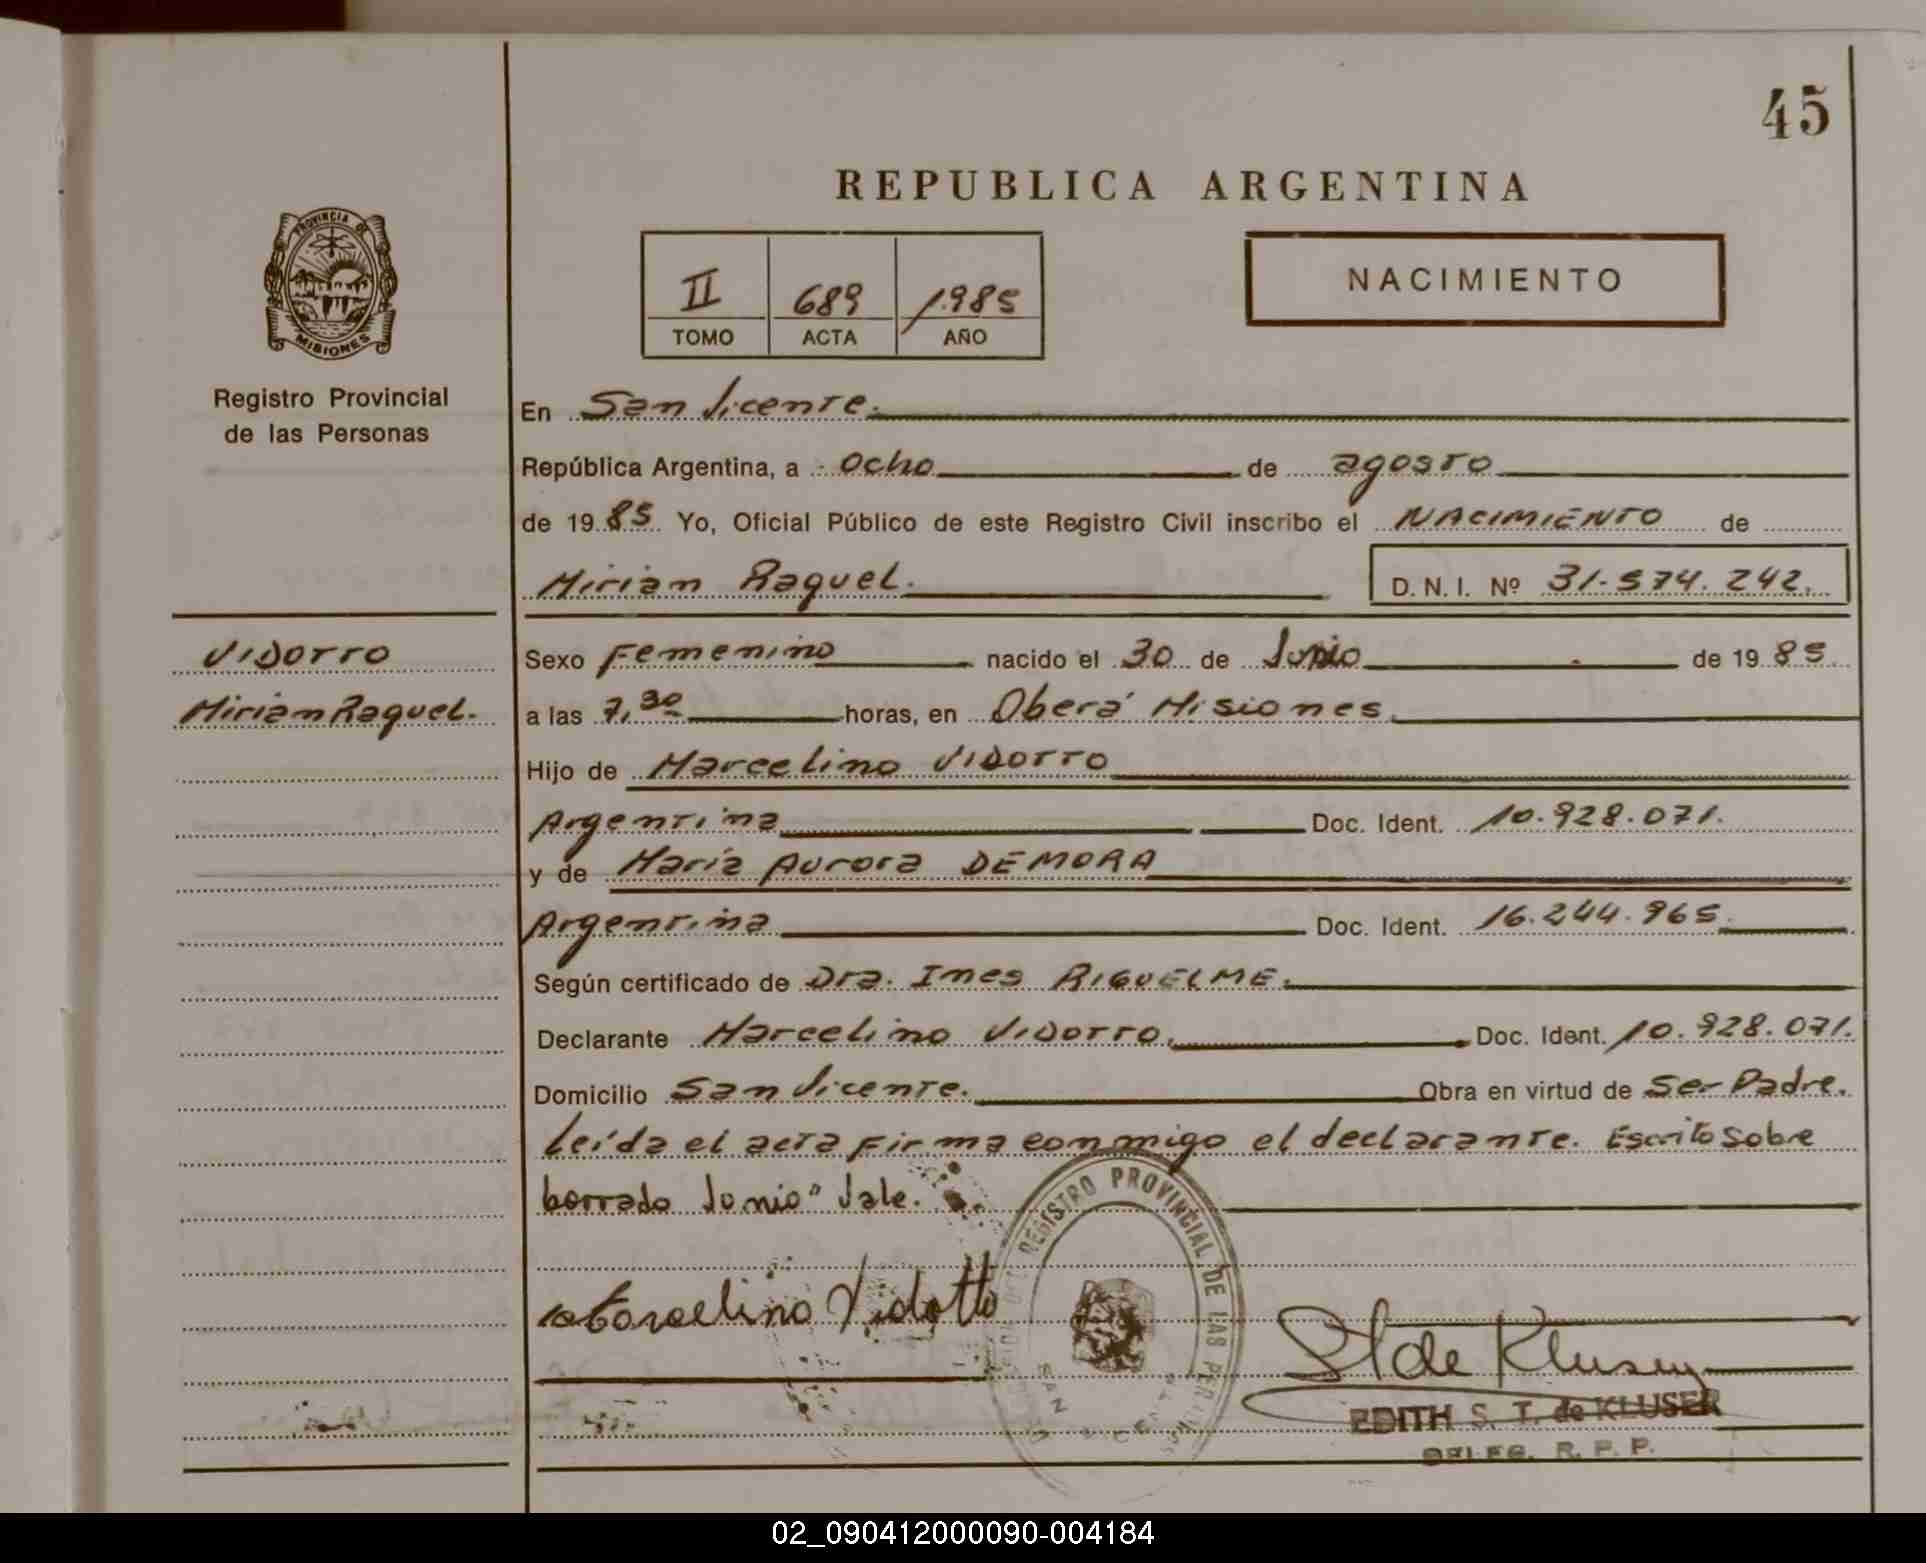 45
REPUBLICA ARGENTINA
PROVINCIA DE
MISIONES
Registro Provincial
de las Personas
II 689 1985
TOMO ACTA AÑO
NACIMIENTO
En San Vicente.
República Argentina, a ocho de agosto
de 1985 Yo, Oficial Público de este Registro Civil inscribo el NACIMIENTO de
Mirian Raquel. D. N. I. Nº 31.574.242.
VIDOTTO
Mirian Raquel.
Sexo Femenino nacido el 30 de Junio de 1985
a las 7,30 horas, en Oberá Misiones
Hijo de Marcelino VIDOTTO
Argentina Doc. Ident. 10.928.071.
y de María Aurora DEMORA
Argentina Doc. Ident. 16.244.965
Según certificado de Dra. Ines RIGUELME.
Declarante Marcelino VIDOTTO. Doc. Ident. 10.928.071.
Domicilio San Vicente. Obra en virtud de Ser Padre.
Leída el acta firma conmigo el declarante. Escrito sobre
borrado Junio" Vale.
REGISTRO PROVINCIAL DE LAS
SAN VICENTE
Marcelino Vidotto
St de Kluser
EDITH S. T. de KLUSER
DELEG. R. P. P.
02_090412000090-004184